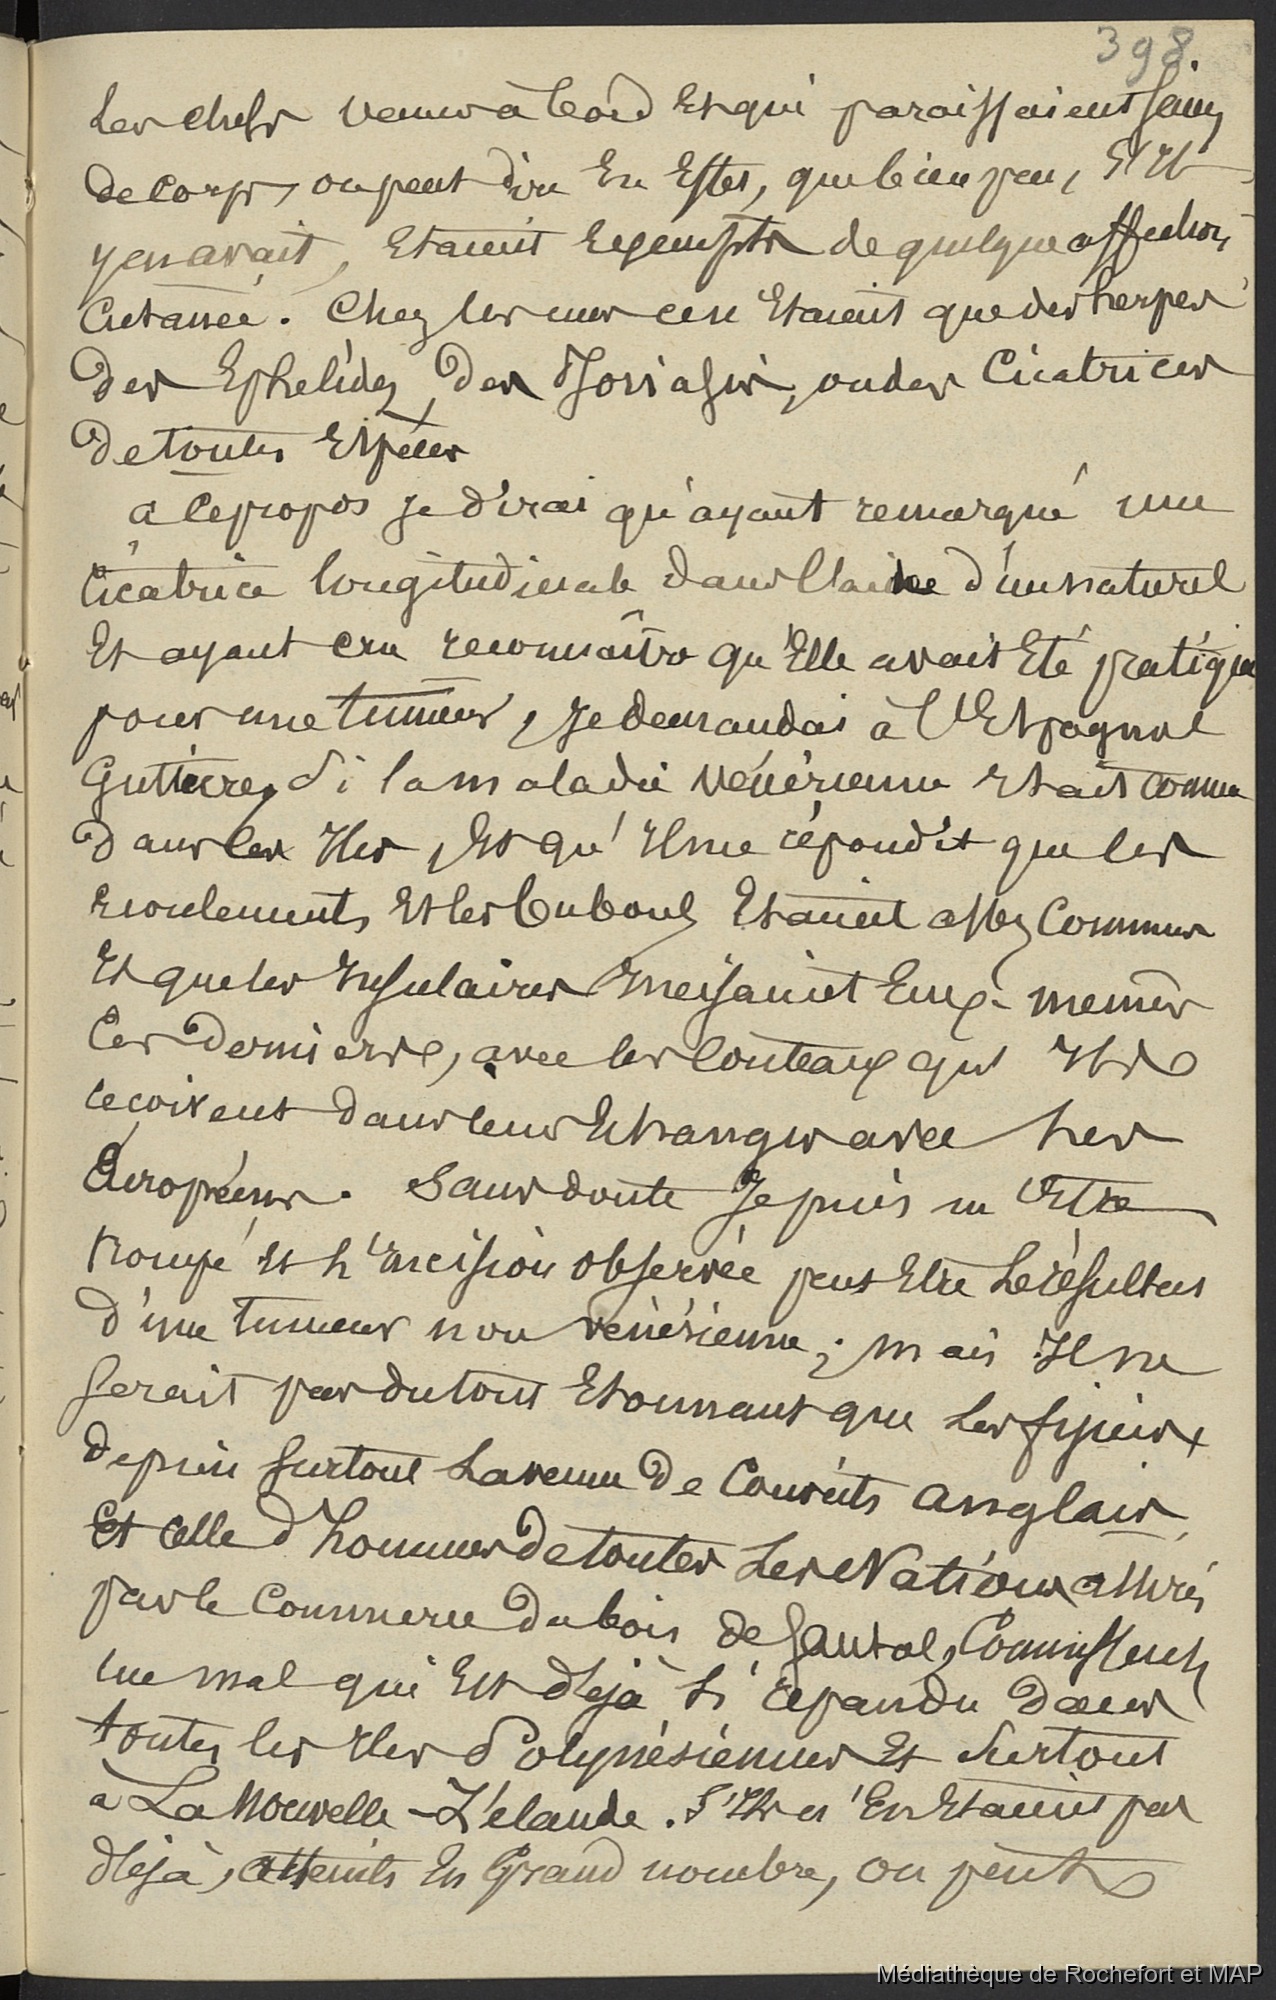 398.
Les chefs venus à bord Et qui paraissaient sains
de corps, on peut dire En Effet, que bien peu, S'Il
y en avait, Etaient Exempts de quelque affection
Cutanée. Chez les uns ce n'Etaient que des herpes
Des Ephelides, Des Psoriasis, ou des Cicatrices
De toutes Espèces
à ce propos Je dirai qu'ayant remarqué une
Cicatrice longitudinale dans l'aine d'un naturel
Et ayant cru reconnaître qu'Elle avait Eté pratiquée
pour une tumeur, Je demandai à l'Espagnol
Guttierez Si la maladie vénérienne Etait connue
Dans les Iles, Et qu'Il me répondit que les
Ecoulements Et les bubons Etaient assez Communs
Et que les Insulaires Incisaient Eux-memes
Ces Derniers, avec les Couteaux qu'Ils
reçoivent dans leurs Echanges avec Les
Européens. Sans doute Je puis m'Etre
trompé Et L'Incision observée peut Etre Le résultat
d'une tumeur non vénérienne; mais Il ne
serait pas du tout Etonnant que Les fijiens
Depuis surtout La venue De Convicts anglais
Et celle d'hommes De toutes Les Nations attirés
par le Commerce du bois de Santal, Connussent
un mal qui Est déjà Si répandu Dans
toutes les Iles Polynésiennes Et Surtout
à La Nouvelle-Zélande. S'Ils n'En Etaient pas
déjà, atteints En Grand nombre, on peut
Médiathèque de Rochefort et MAP